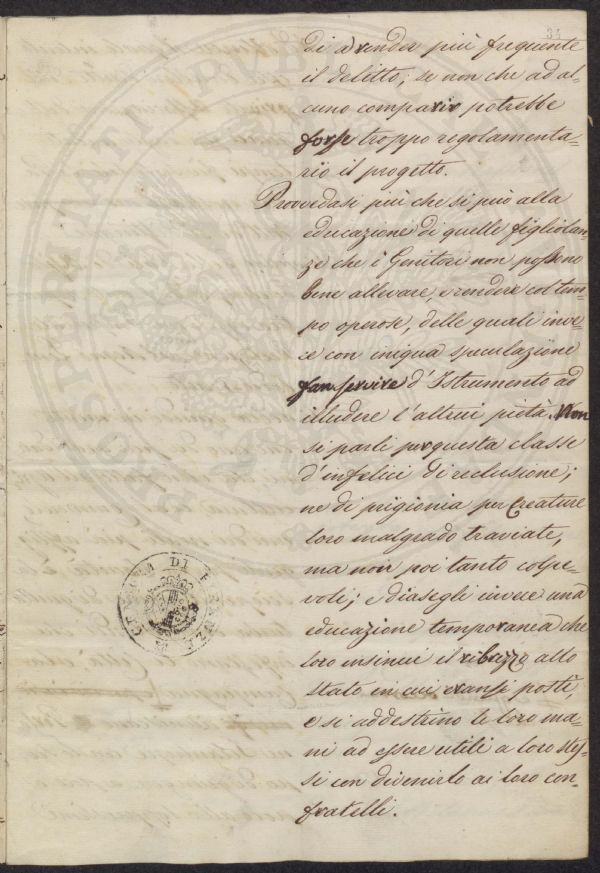 34
di a render più frequente
il delitto; se non che ad al-
cuno comparir potrebbe
forse troppo regolamenta-
rio il progetto.
Provvedasi più che si può alla
educazione di quelle figliolan-
ze che i Genitori non possono
bene allevare, e rendere col tem-
po operose, delle quali inve-
ce con iniqua speculazione
fan servire d'Istrumento ad
illudere l'altrui pietà. Non
si parli per questa classe
d'infelici di reclusione;
ne di prigionia per Creature
loro malgrado traviate,
ma non poi tanto colpe-
voli; e diasegli invece una
educazione temporanea che
loro insinui il ribrezzo allo
stato in cui eransi posti,
e si addestrino le loro ma-
ni ad essere utili a loro stes-
si con divenirlo ai loro con-
fratelli.
PROSPERITATI PUB
DI FIRENZE